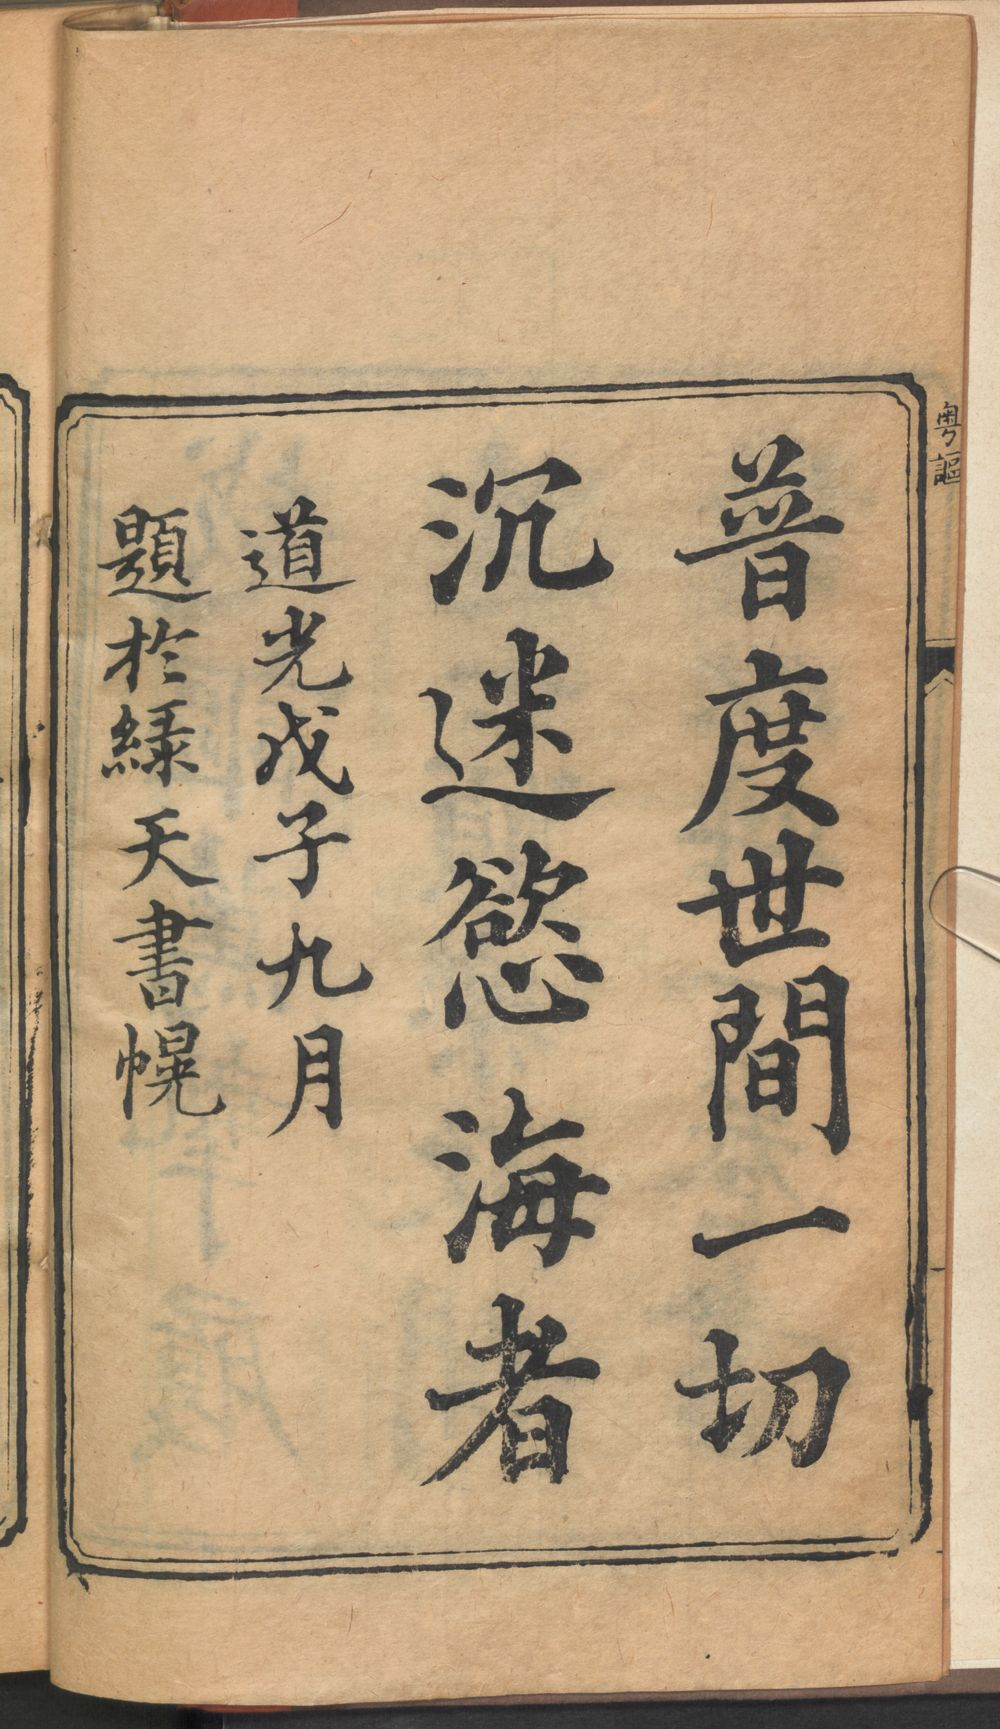 粤謳
普度世間一切
沉迷慾海者
道光戊子九月
題於綠天書幌